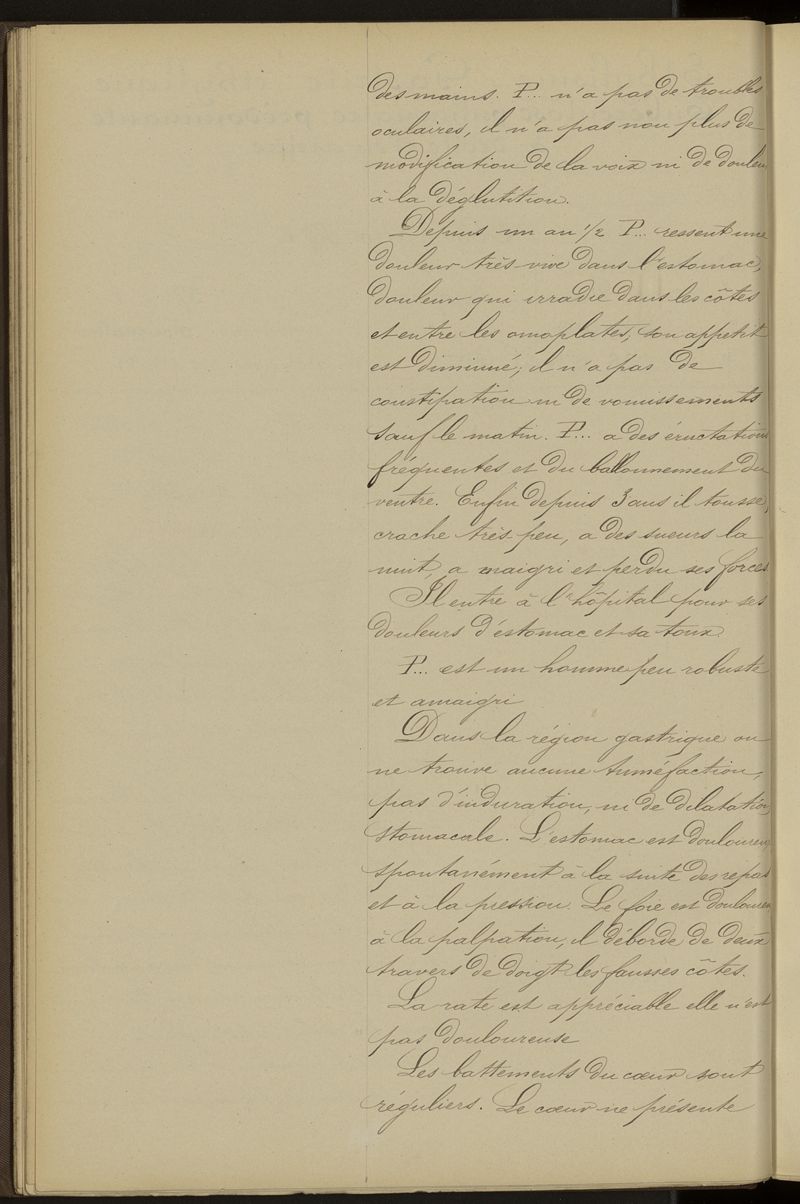 des mains. P... n'a pas de troubles
oculaires, il n'a pas non plus de
modification de la voix ni de douleur
à la déglutition.
Depuis un an 1/2 P... ressent une
douleur très vive dans l'estomac,
douleur qui irradie dans les côtes
et entre les omoplates, son appetit
est diminué; il n'a pas de
constipation ni de vomissements
sauf le matin. P... a des éructations
fréquentes et du ballonnement du
ventre. Enfin depuis 3 ans il tousse,
crache très peu, a des sueurs la
nuit, a maigri et perdu ses forces
Il entre à l'hôpital pour ses
douleurs d'estomac et sa toux
P... est un homme peu robuste
et amaigri
Dans la région gastrique on
ne trouve aucune tuméfaction,
pas d'induration, ni de dilatation
stomacale. L'estomac est douloureux
spontanément à la suite des repas
et à la pression. Le foie est douloureux
à la palpation, il déborde de deux
travers de doigt les fausses côtes.
La rate est appréciable elle n'est
pas douloureuse
Les battements du cœur sont
réguliers. Le cœur ne présente